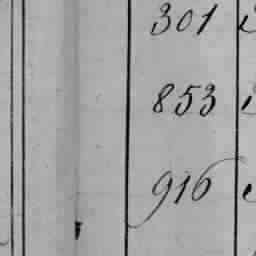 301
853
916